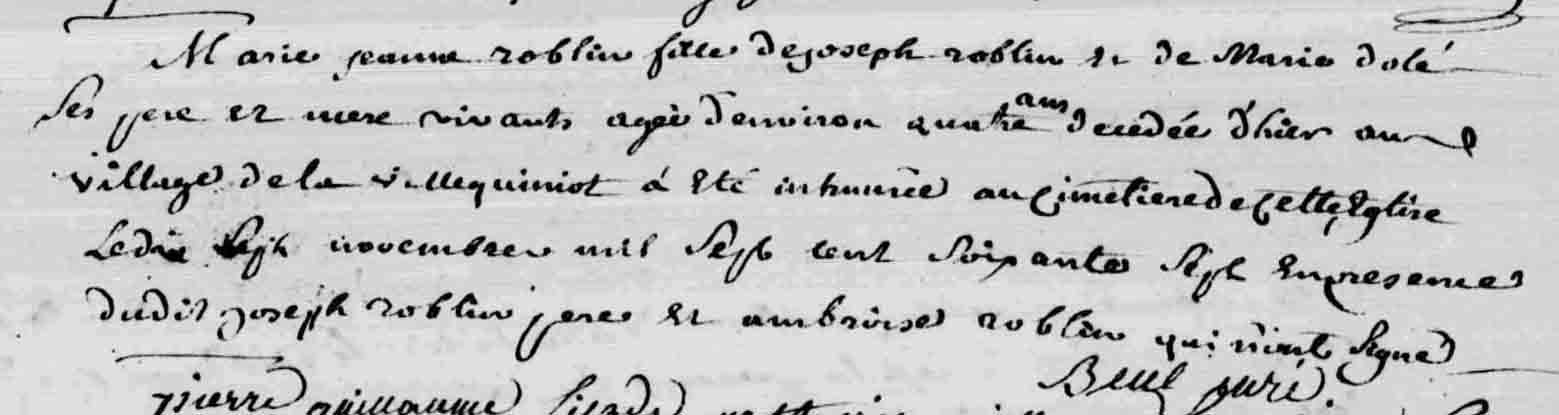 Marie jeanne roblin fille de joseph roblin et de Marie dolé
Ses pere et mere vivants agée d'environ quatre ans decedée d'hier au
village de la villequiniot á eté inhumée au cimetiere de cette Eglise
Le dix Sept novembre mil Sept cent Soixante Sept En presence
dudit joseph roblin pere et ambroise roblin qui n'ont Signé
curé.
pierre guillaume